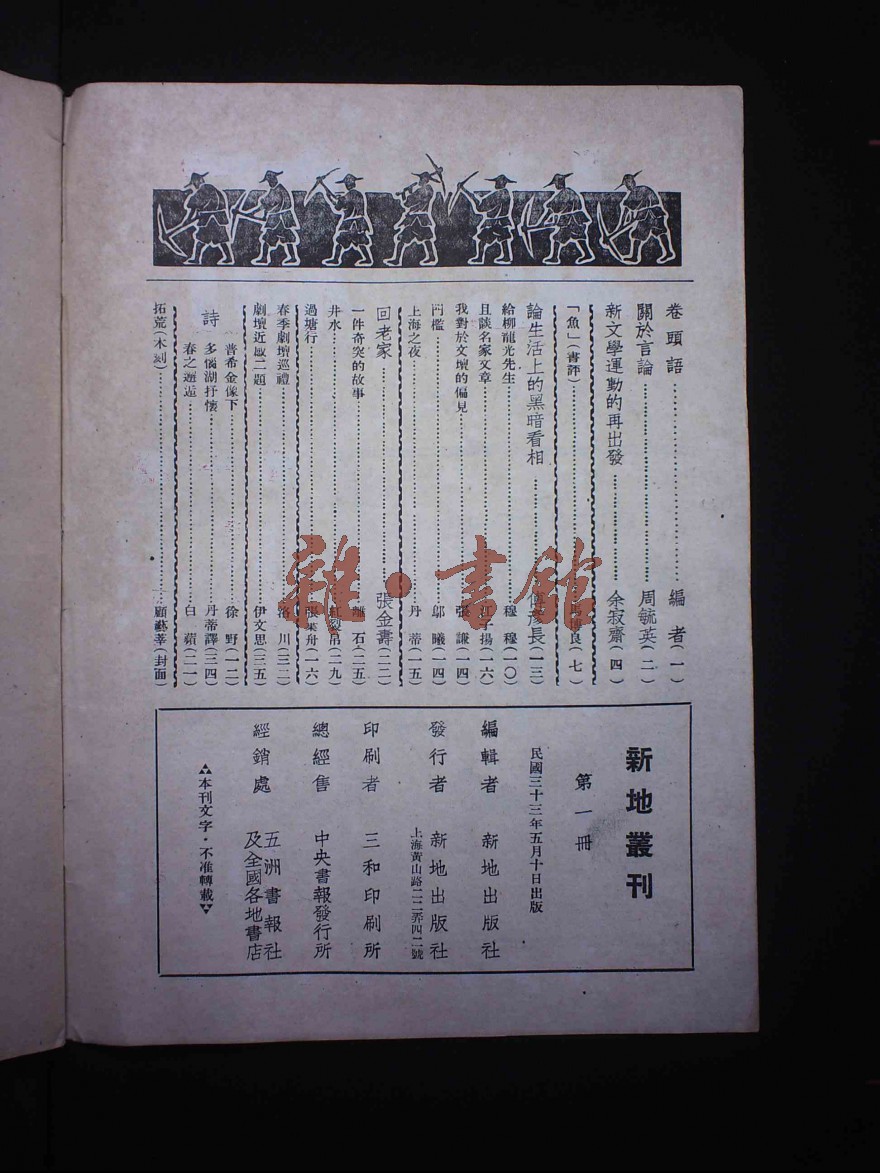 卷頭語 編者（一）
關於言論 周毓英（二）
新文學運動的再出發 余寂齋（四）
「魚」（書評） 馬博良（七）
論生活上的黑暗看相 傅彥長（一三）
給柳龍光先生 穆穆（一〇）
且談名家文章 子揚（一六）
我對於文壇的偏見 張謙（一四）
門檻 鄔曦（一四）
上海之夜 丹蒂（一五）
回老家 張金壽（二二）
一件奇突的故事 離石（二五）
井水 紅裂帛（二九）
過塘行 張葉舟（一六）
春季劇壇巡禮 洛川（三二）
劇壇近感二題 伊文思（三五）
詩
普希金像下 徐野（一二）
多惱湖抒懷 丹蒂譯（三四）
春之邂逅 白蘋（二一）
拓荒（木刻） 顧藝莘（封面）
新地叢刊
第一冊
民國三十三年五月十日出版
編輯者 新地出版社
發行者 新地出版社
上海黃山路二二弄四二號
印刷者 三和印刷所
總經售 中央書報發行所
經銷處 五洲書報社
及全國各地書店
本刊文字・不准轉載
雜・書館